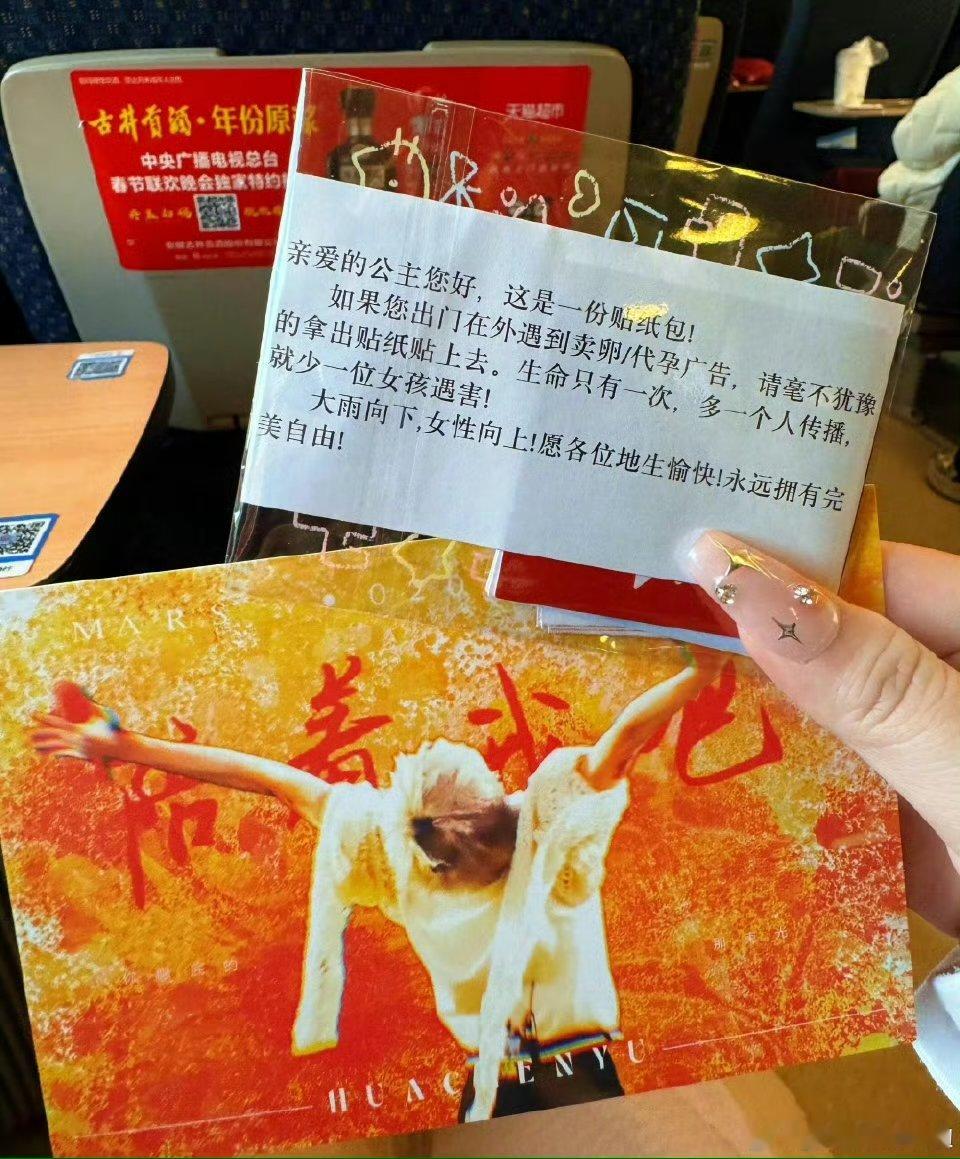 古井贡酒·年份原浆
天猫超市
中央广播电视总台
春节联欢晚会独家特约
亲爱的公主您好，这是一份贴纸包!
如果您出门在外遇到卖卵/代孕广告，请毫不犹豫
的拿出贴纸贴上去。生命只有一次，多一个人传播，
就少一位女孩遇害!
大雨向下,女性向上!愿各位地生愉快!永远拥有完
美自由!
MARS
陪着我吧
那有光
HUACHENYU